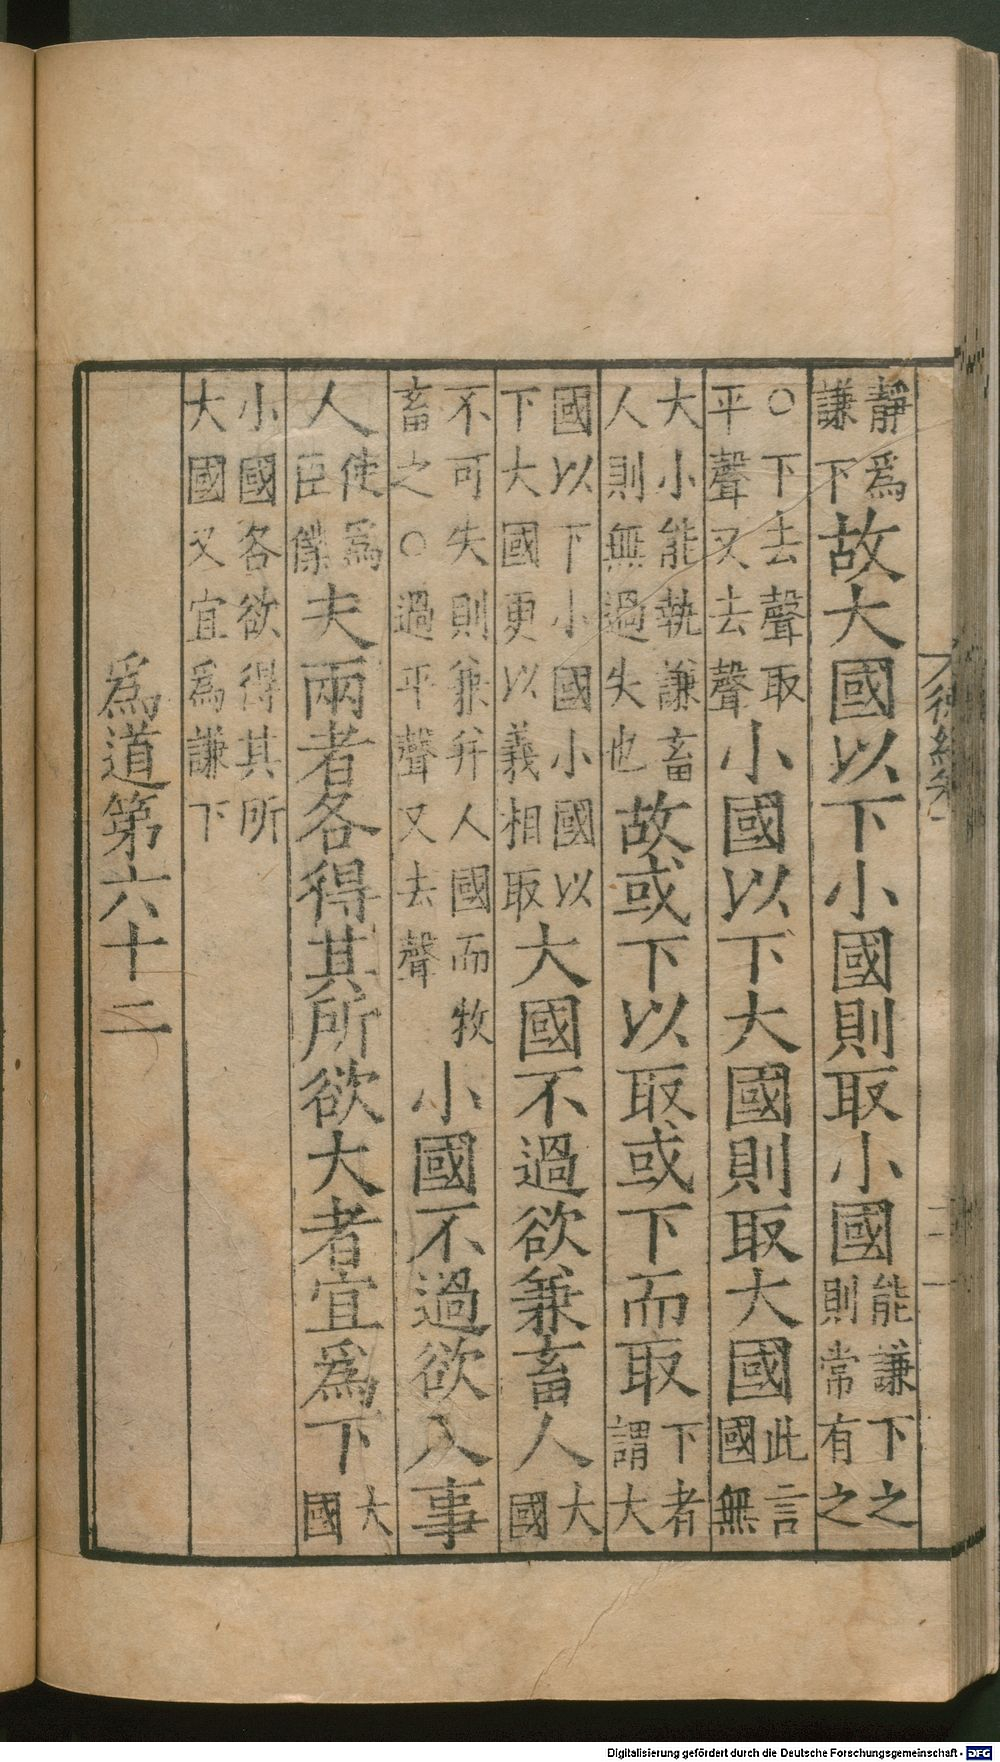 靜爲謙下故大國以下小國則取小國能謙下之則常有之
○下去聲取平聲又去聲小國以下大國則取大國此言國無
大小能執謙畜人則無過失也故或下以取或下而取下者謂大
國以下小國小國以下大國更以義相取大國不過欲兼畜人大國
不可失則兼并人國而牧畜之○過平聲又去聲小國不過欲入事
人使爲臣僕夫兩者各得其所欲大者宜爲下大國
小國各欲得其所大國又宜爲謙下
爲道第六十二
Digitalisierung gefördert durch die Deutsche Forschungsgemeinschaft - DFG